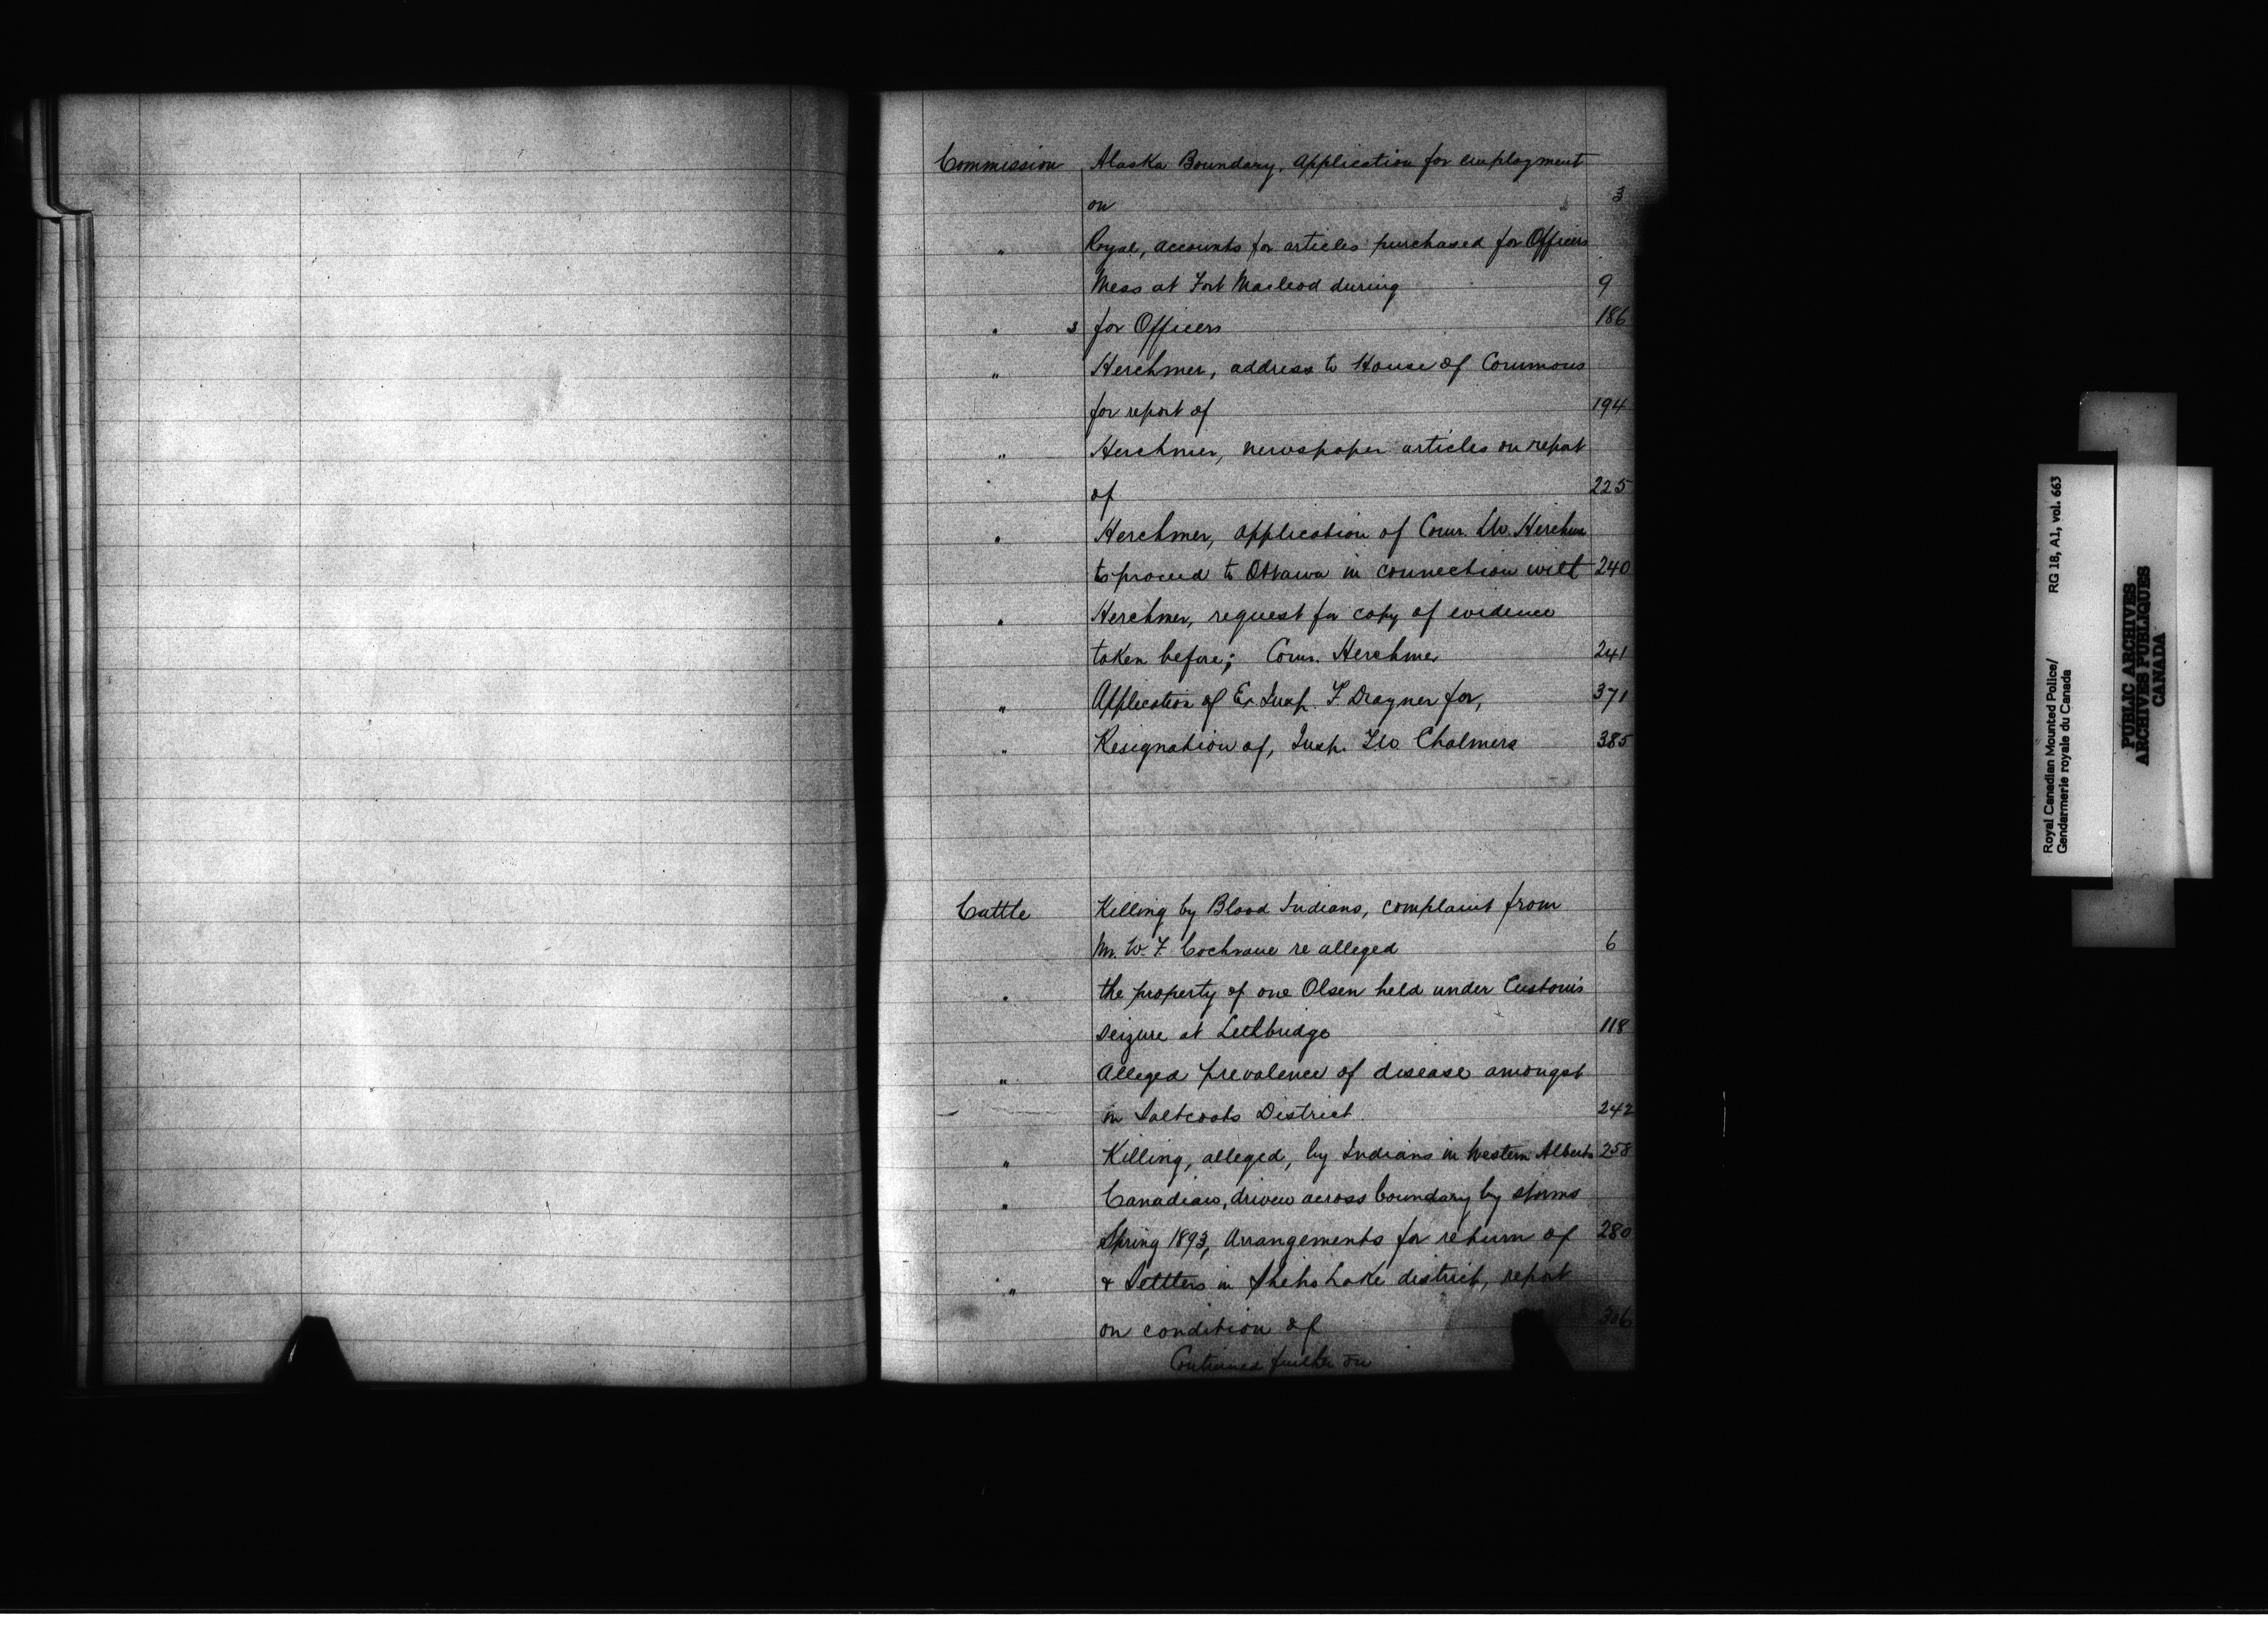 Commission Alaska Boundary, Application for employment
on 3
" Royal, accounts for articles purchased for Officers
Mess at Fort Macleod during 9
" s for Officers 186
" Herchmer, address to House of Commons
for report of 194
" Herchmer, newspaper articles on report
of 225
" Herchmer, application of Comr. Herchmer
to proceed to Ottawa in connection with 240
" Herchmer, request for copy of evidence
taken before; Comr. Herchmer 241
" Application of Ex Insp. F Dragner for, 371
" Resignation of, Insp. TW Chalmers 385
Cattle Killing by Blood Indians, complaint from
Mr. W. F. Cochrane re alleged 6
" the property of one Olsen held under Customs
seizure at Lethbridge 118
" Alleged prevalence of disease amongst
in Saltcoats District 242
" Killing, alleged, by Indians in Western Alberta 258
" Canadian, driven across boundary by storms
Spring 1893, Arrangements for return of 280
" & Settlers in Sheho Lake district, report
on condition of 306
Continued further on
Royal Canadian Mounted Police/ RG 18, A1, vol. 663
Gendarmerie royale du Canada
PUBLIC ARCHIVES
ARCHIVES PUBLIQUES
CANADA